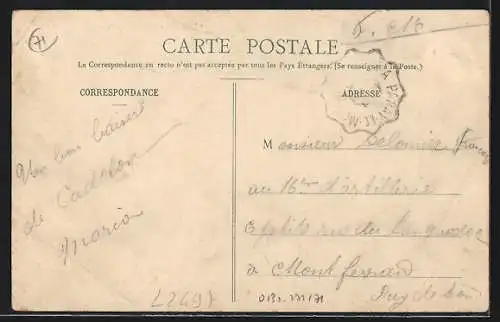 71
F. C16
CARTE POSTALE
La Correspondance au recto n'est pas acceptée par tous les Pays Étrangers. (Se renseigner à la Poste.)
CORRESPONDANCE
ADRESSE
Un bon baiser
de Cadelon
Maria
Monsieur Colomier François
au 16me d'artillerie
à Montferrand
Puy de Dôme
L2491